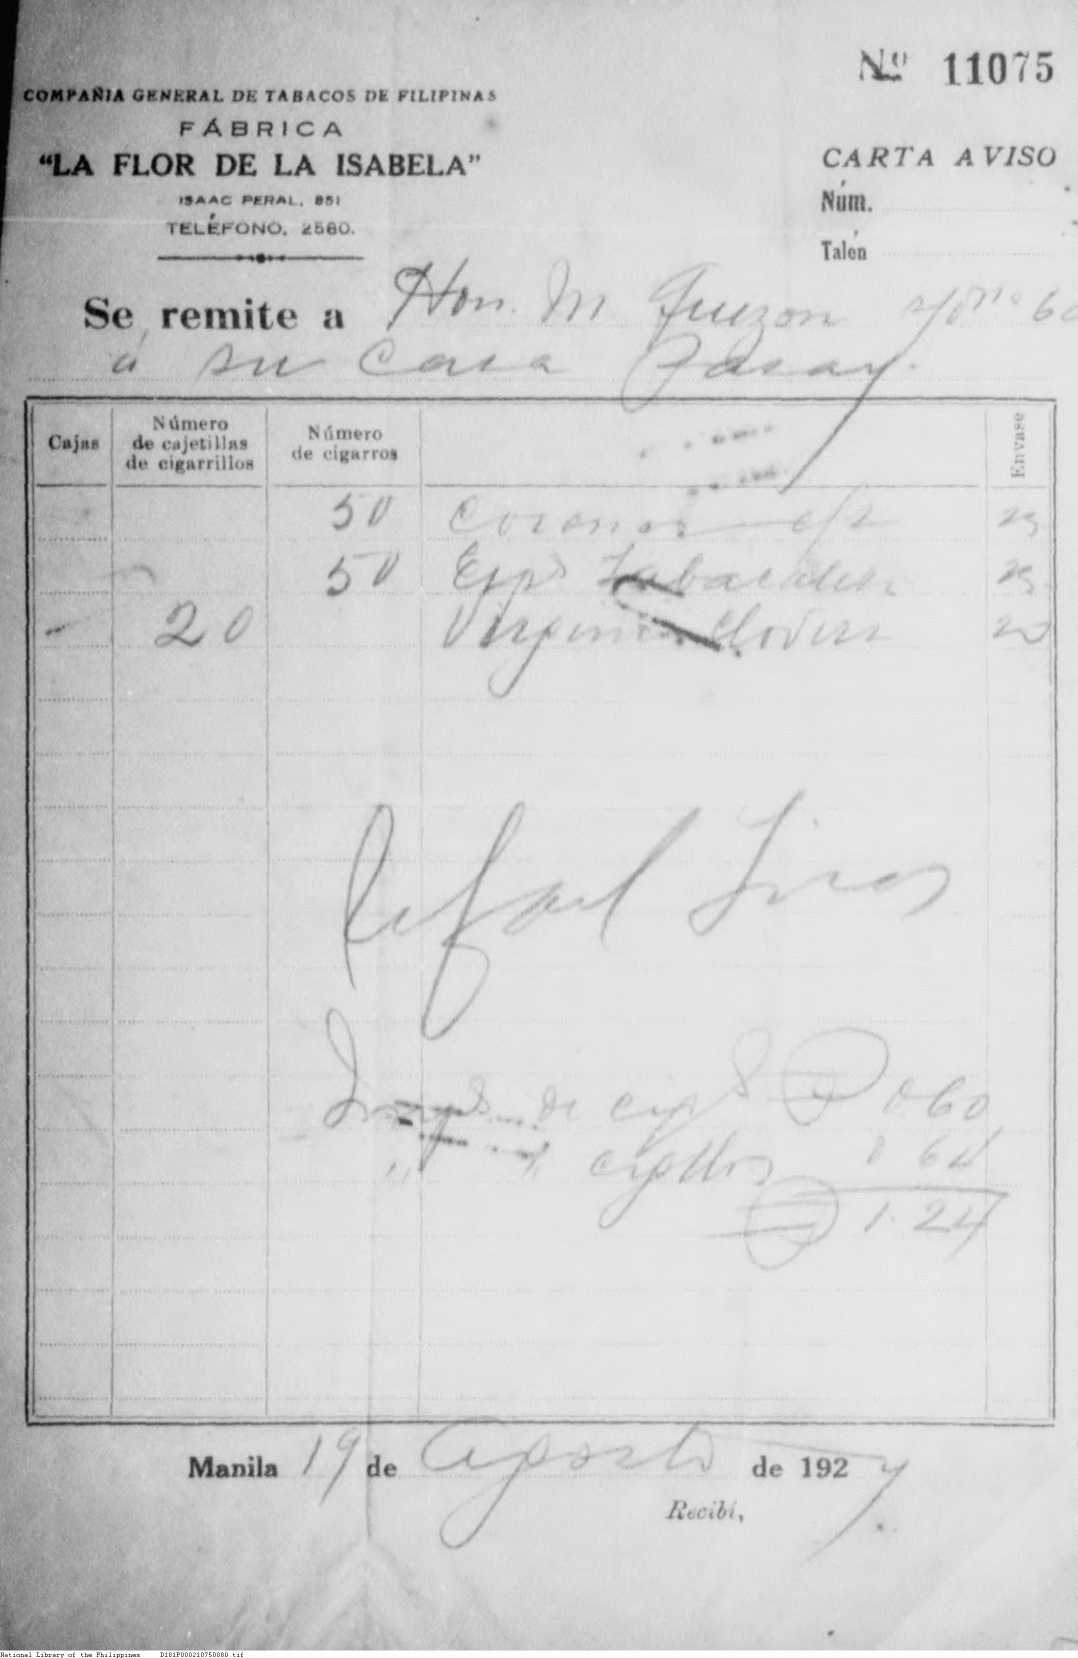 Nº 11075
COMPAÑIA GENERAL DE TABACOS DE FILIPINAS
FÁBRICA
"LA FLOR DE LA ISABELA"
ISAAC PERAL, 851
TELÉFONO, 2580.
CARTA AVISO
Núm.
Talón
Se remite a Hon. M Quezon
a su casa Pasay.
Cajas
Número de cajetillas de cigarrillos
Número de cigarros
Envase
50 Coronas 25
50 Esps Tabacalera 25
20 Virginia 20
Rafael
de 0 60
" " 0 64
1.24
Manila 19 de Agosto de 1927
Recibí,
National Library of the Philippines D181P000210750080.tif